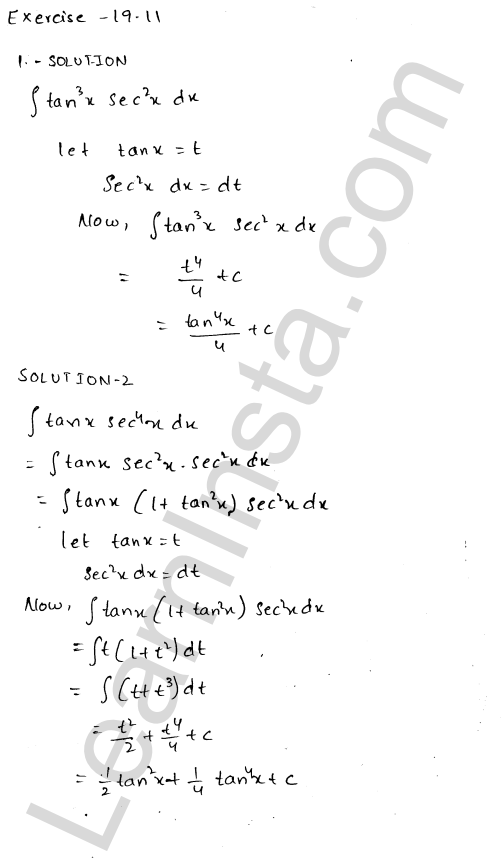 Exercise -19.11
1. - SOLUTION
∫ tan³x sec²x dx
let tanx = t
Sec²x dx = dt
Now, ∫ tan³x sec²x dx
= t⁴/4 + c
= tan⁴x/4 + c
SOLUTION-2
∫ tanx sec⁴x dx
= ∫ tanx sec²x . sec²x dx
= ∫ tanx (1+ tan²x) sec²x dx
let tanx = t
sec²x dx = dt
Now, ∫ tanx (1+ tan²x) sec²x dx
= ∫ t (1+t²) dt
= ∫ (t+t³) dt
= t²/2 + t⁴/4 + c
= 1/2 tan²x + 1/4 tan⁴x + c
LearnInsta.com